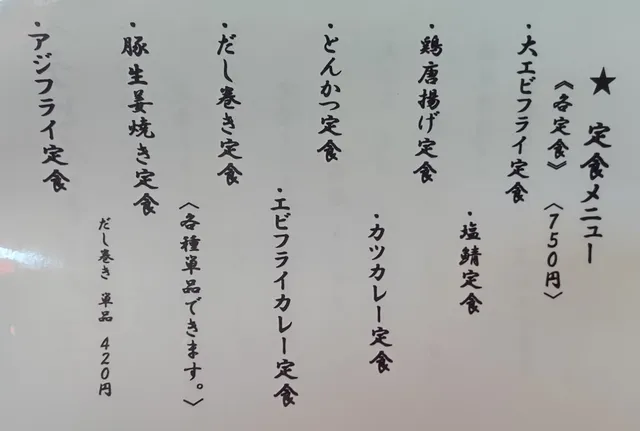 ★ 定食メニュー
《各定食》 〈750円〉
・大エビフライ定食
・塩鯖定食
・鶏唐揚げ定食
・カツカレー定食
・とんかつ定食
・エビフライカレー定食
・だし巻き定食
〈各種単品できます。〉
・豚生姜焼き定食
だし巻き 単品 420円
・アジフライ定食